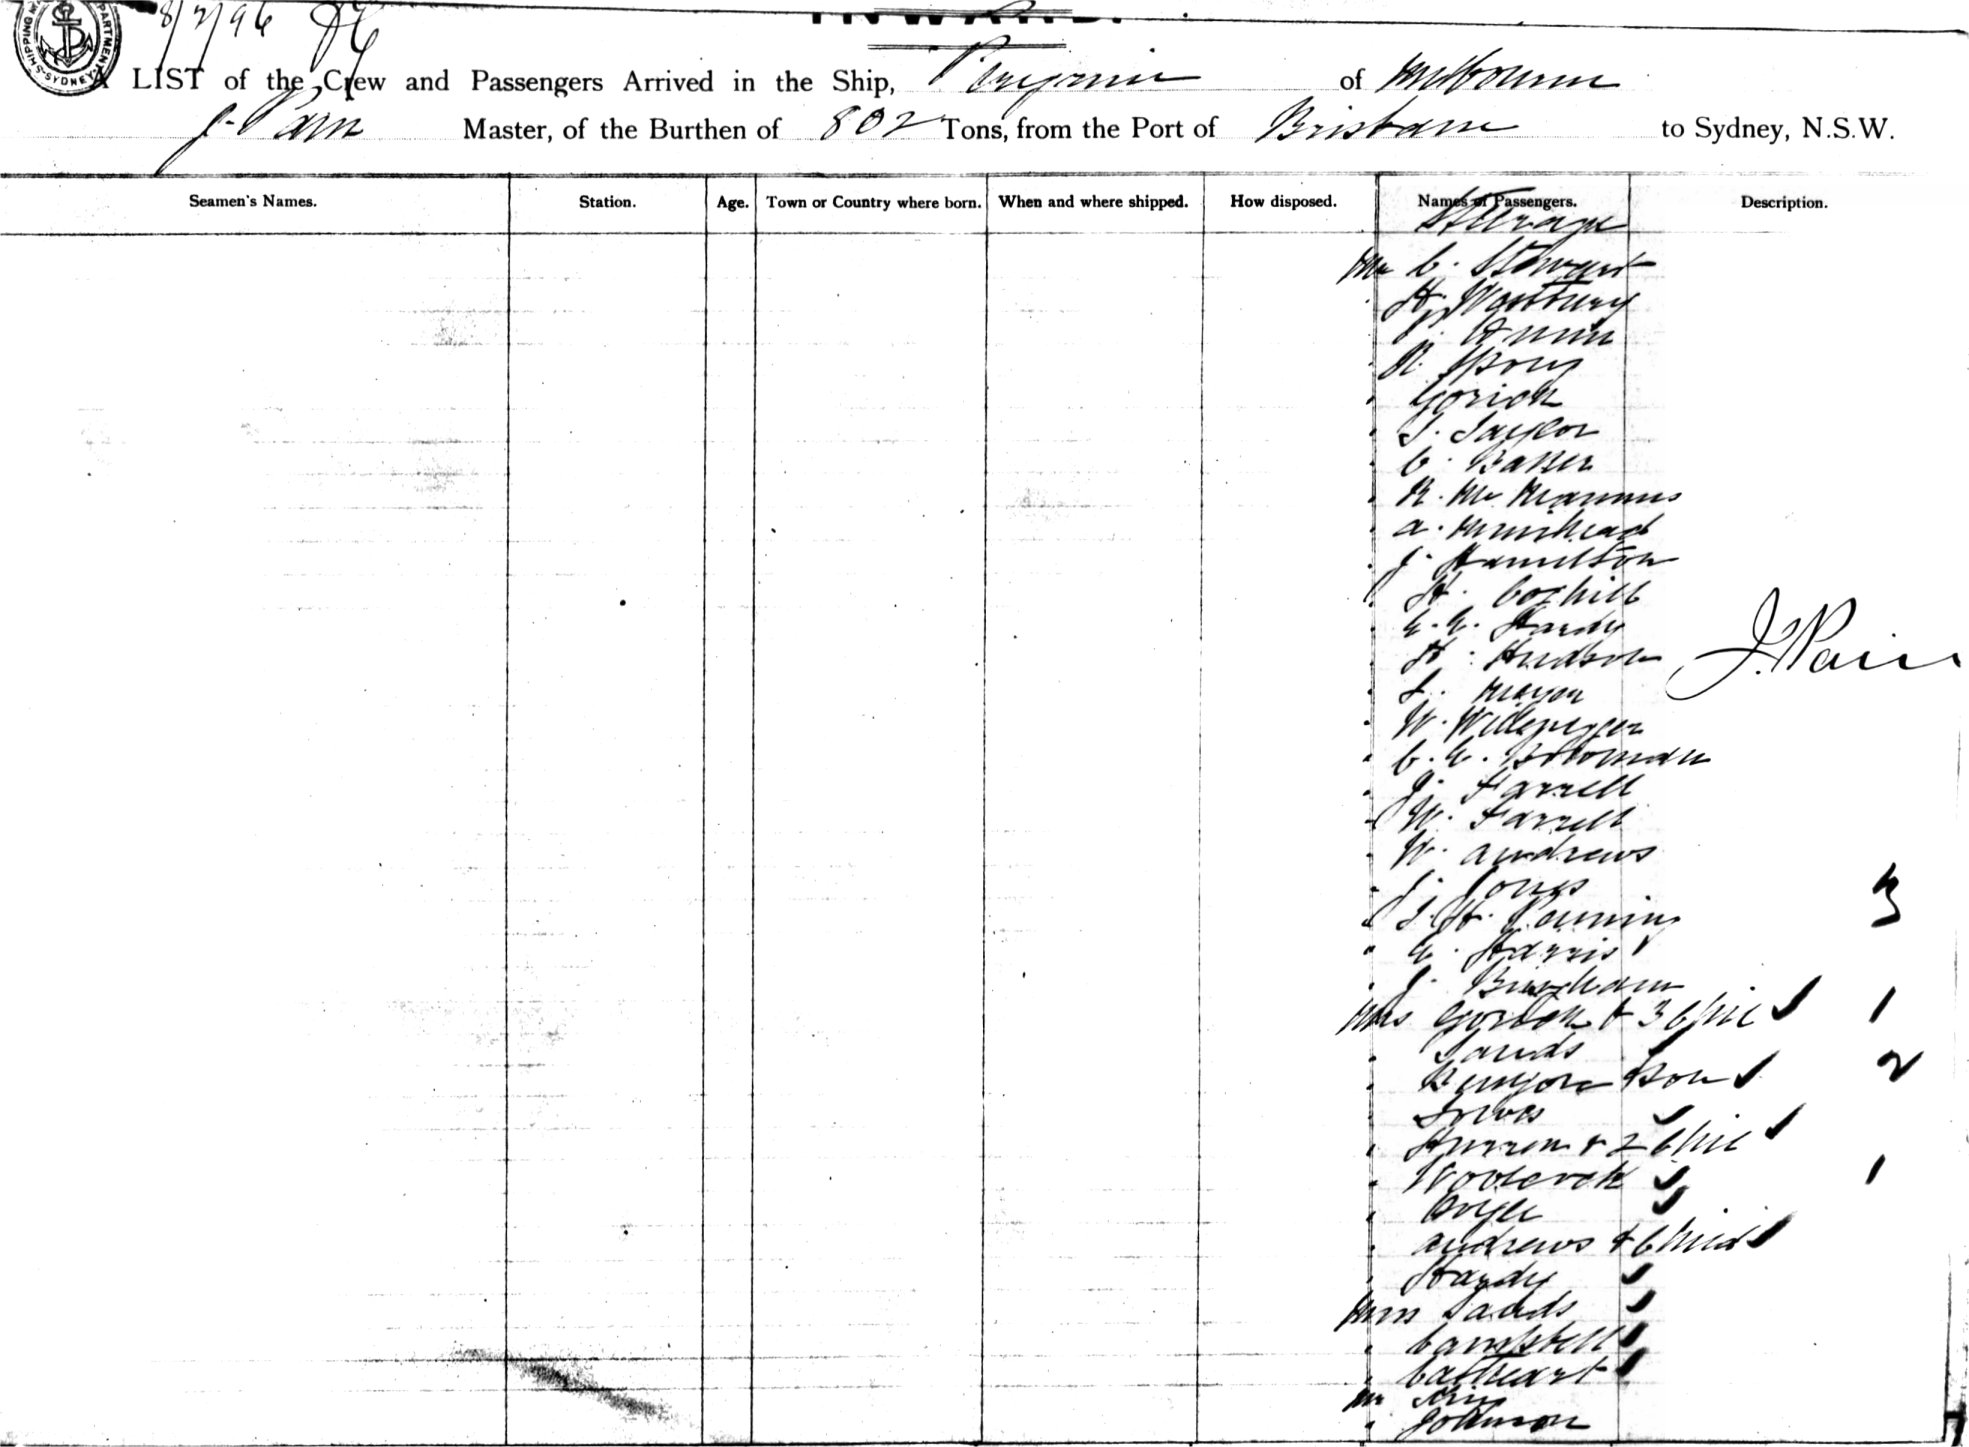 8/2/96
SHIPPING DEPARTMENT SYDNEY
INWARD.
A LIST of the Crew and Passengers Arrived in the Ship, of Melbourne
J. Pain Master, of the Burthen of 802 Tons, from the Port of Brisbane to Sydney, N.S.W.
Seamen's Names. Station. Age. Town or Country where born. When and where shipped. How disposed. Names of Passengers. Description.
Steerage
Mr C. Stewart
" H. Westbury
" J.
" R. Spong
" Gorick
" T. Taylor
" C. Baker
" R. McManus
" A. Muirhead
" J. Hamilton
" H. Coghill
" E. E. Hardy
" H. Hudson
" L. Mayor
" W.
" C. E.
" J. Farrell
" W. Farrell
" W. Andrews
" J. Jones
" T. H.
" E. Harris
" J. Bingham
Mrs Gorick & 3 Chil 1
" Sands
" & Son 2
"
" & 2 Chil
" Woolcock 1
" Boyle
" Andrews & Child
" Hardy
Miss Sands
" Campbell
" Cathcart
Mr King
" Johnson
3
J. Pain